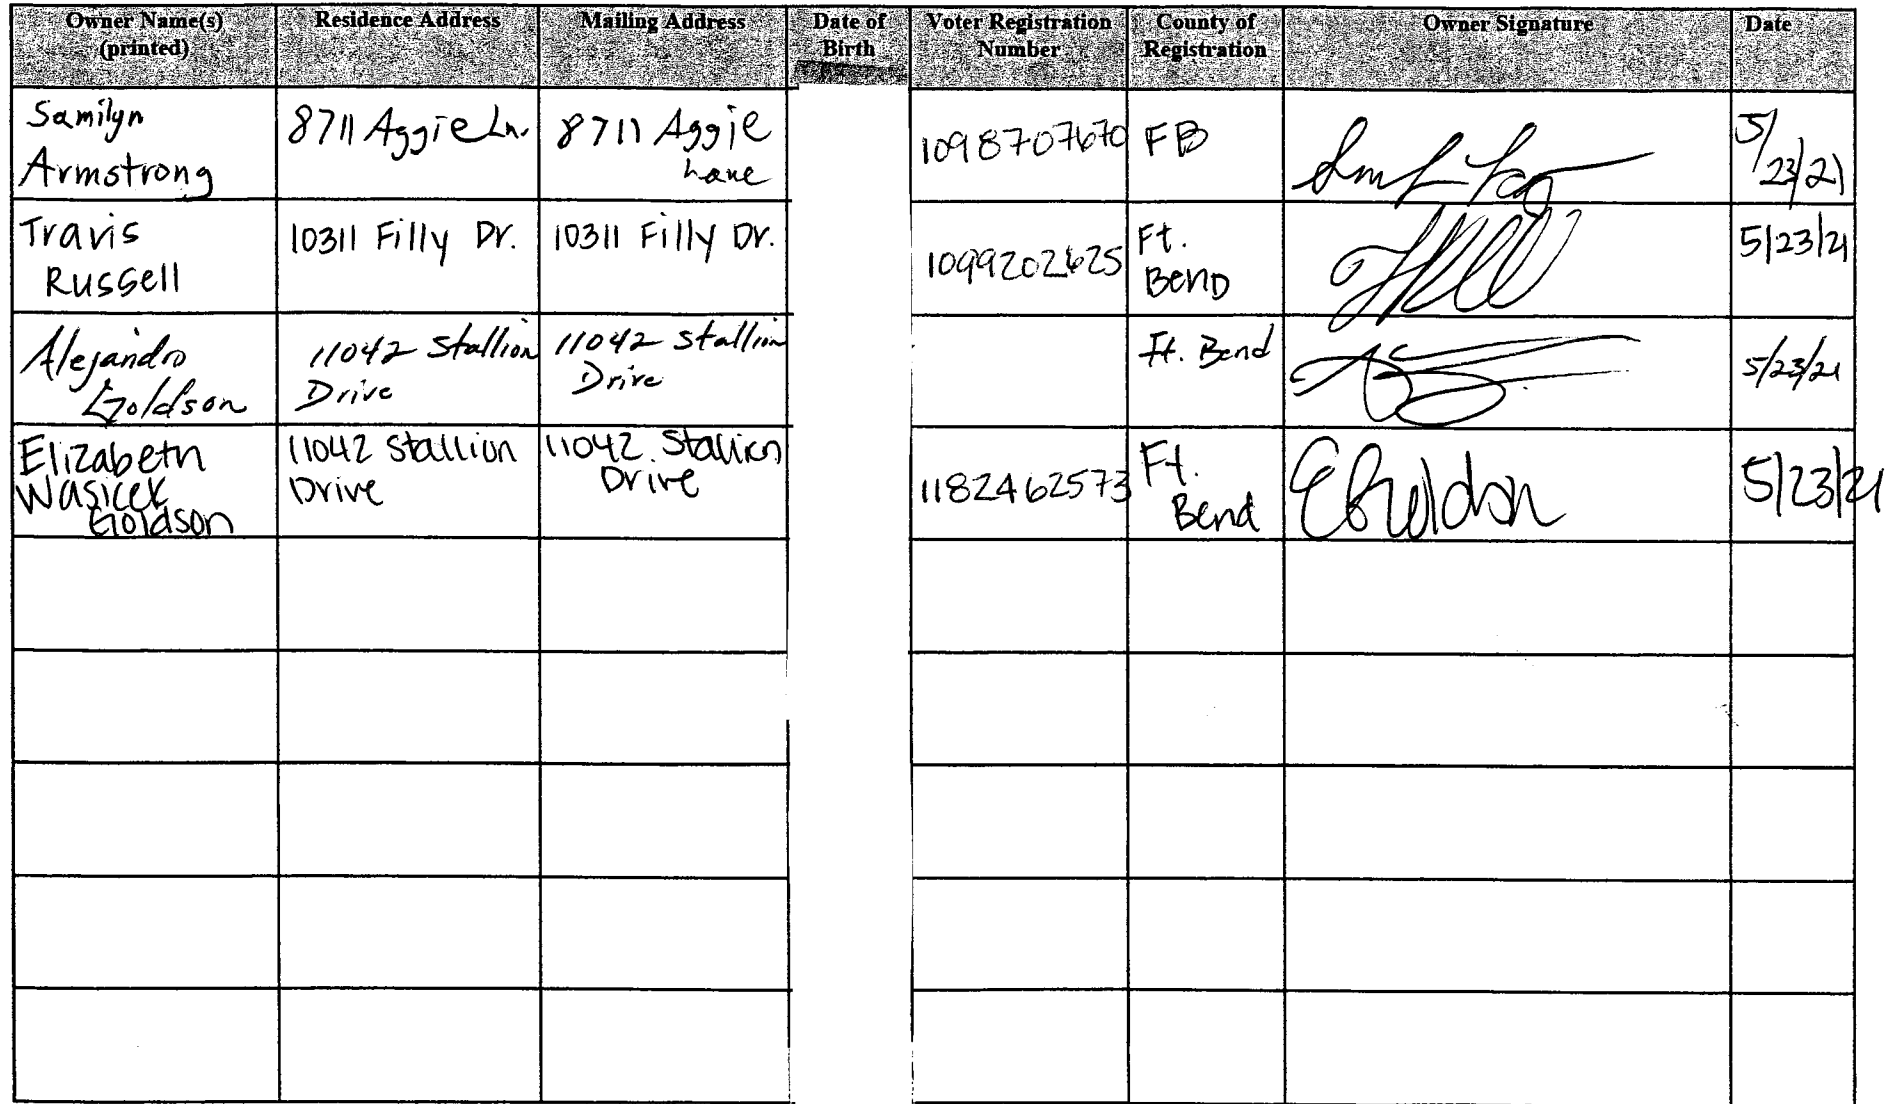 Owner Name(s)
(printed)
Residence Address
Mailing Address
Date of
Birth
Voter Registration
Number
County of
Registration
Owner Signature
Date
Samilyn
Armstrong
8711 Aggie Ln.
8711 Aggie
Lane
1098707670
FB
5/
23/21
Travis
Russell
10311 Filly Dr.
10311 Filly Dr.
1099202625
Ft.
Bend
5/23/21
Alejandro
Goldson
11042 Stallion
Drive
11042 Stallion
Drive
Ft. Bend
5/23/21
Elizabeth
Wasicek
Goldson
11042 Stallion
Drive
11042 Stallion
Drive
1182462573
Ft.
Bend
EGoldson
5/23/21